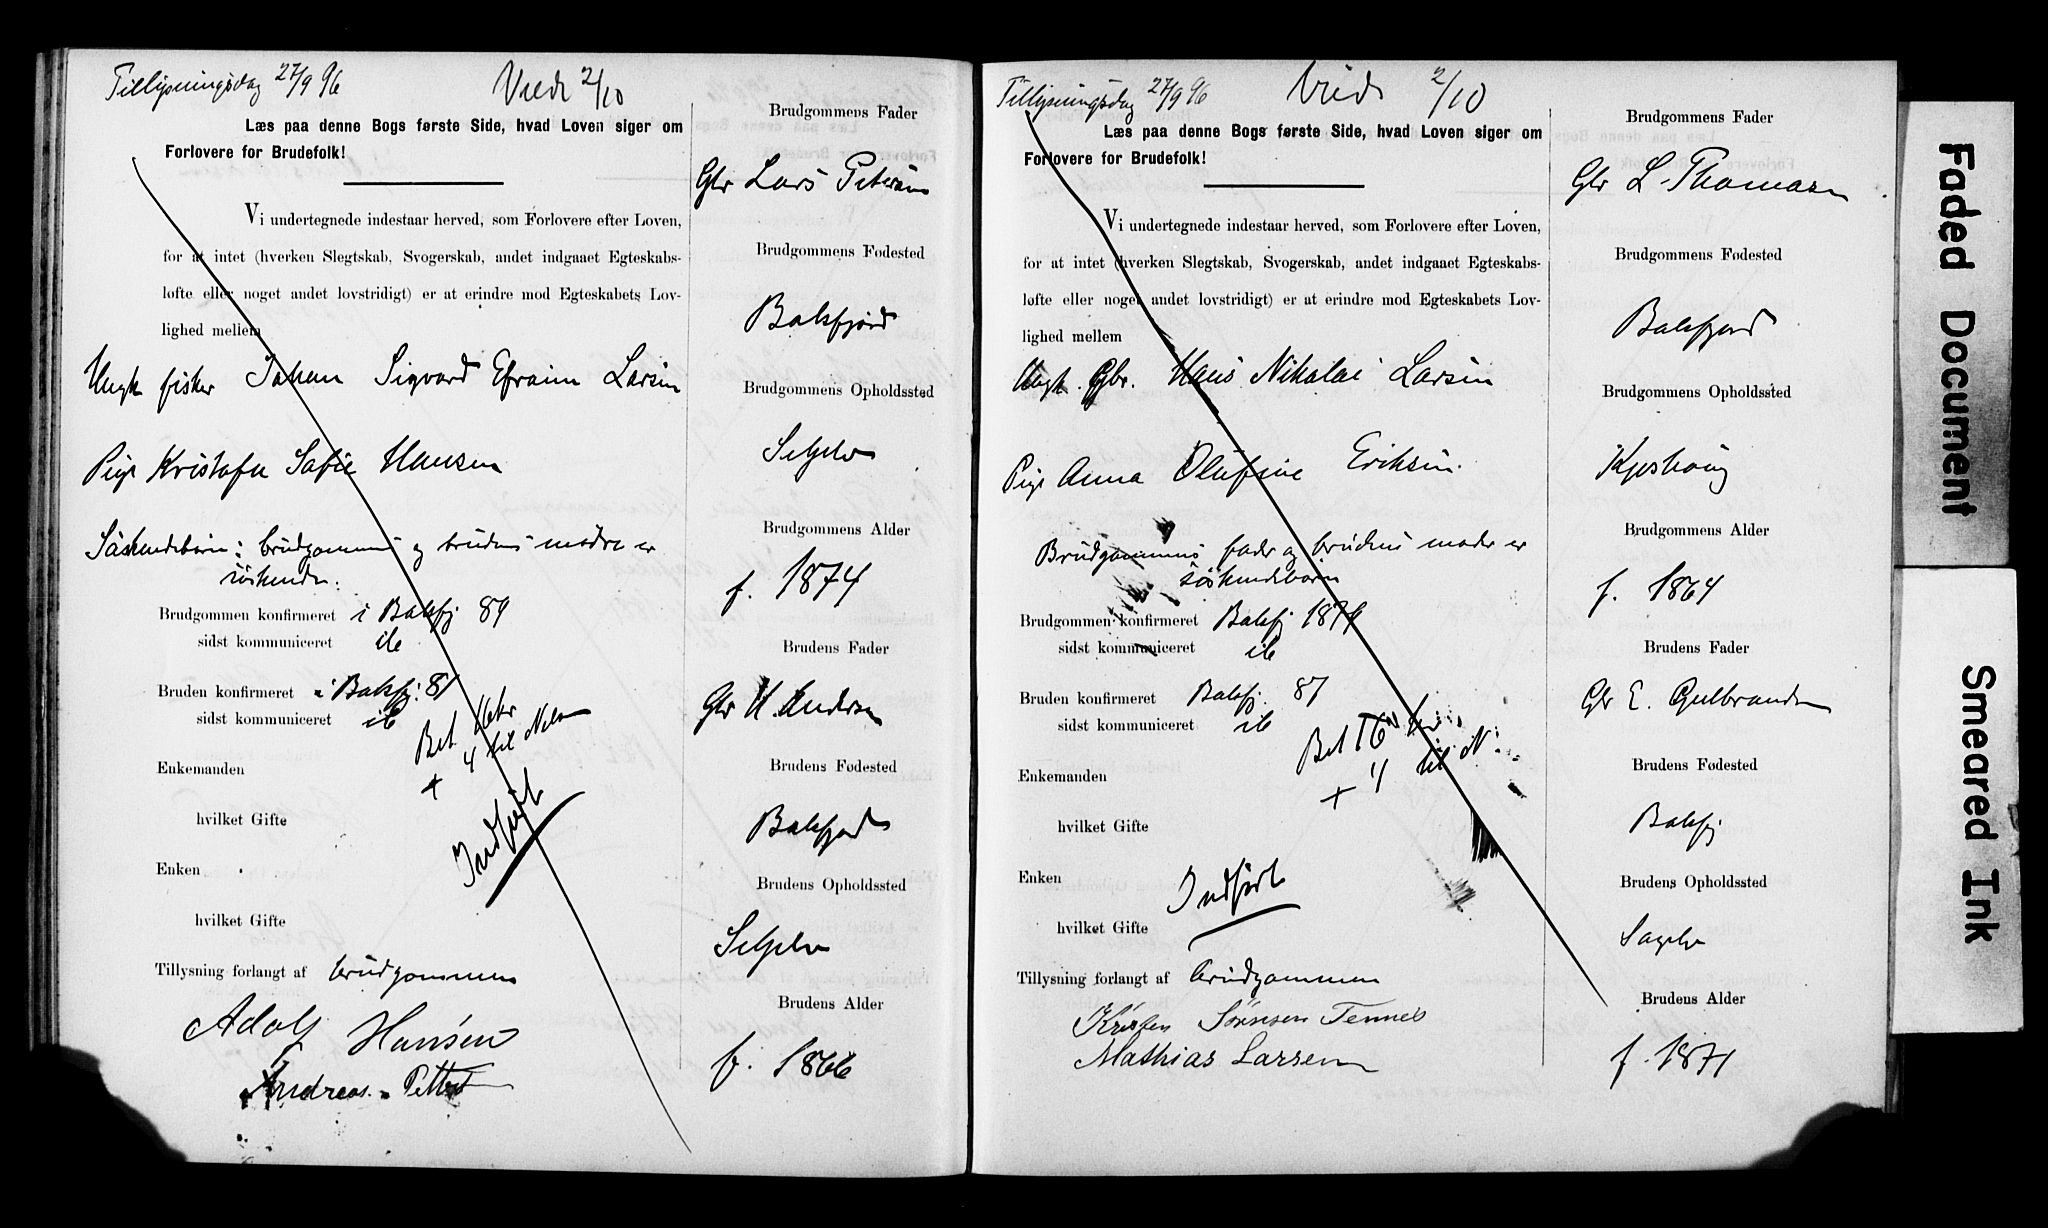 Tillysningsdag 27/9 96 Viede 2/10
Læs paa denne Bogs første Side, hvad Loven siger om
Forlovere for Brudefolk!
Vi undertegnede indestaar herved, som Forlovere efter Loven,
for at intet (hverken Slegtskab, Svogerskab, andet indgaaet Egteskabs-
løfte eller noget andet lovstridigt) er at erindre mod Egteskabets Lov-
lighed mellem
Ungk fisker Johan Sigvard Efraim Larsen
Pige Kristofa Sofie Hansen
Söskendebörn: brudgommens og brudens mödre er
söskende.
Brudgommen konfirmeret i Balsfj 89
sidst kommuniceret ib
Bruden konfirmeret i Balsfj. 81
sidst kommuniceret ib
Bet 16 kr
+ 4 til Nels
Enkemanden
hvilket Gifte
Indført
Enken
hvilket Gifte
Tillysning forlangt af brudgommen
Adolf Hansen
Andreas
Brudgommens Fader
Gbr Lars Petersen
Brudgommens Fødested
Balsfjord
Brudgommens Opholdssted
Seljelv
Brudgommens Alder
f. 1874
Brudens Fader
Gbr H. Andersen
Brudens Fødested
Balsfjord
Brudens Opholdssted
Seljelv
Brudens Alder
f. 1866
Tillysningsdag 27/9 96 Vied 2/10
Læs paa denne Bogs første Side, hvad Loven siger om
Forlovere for Brudefolk!
Vi undertegnede indestaar herved, som Forlovere efter Loven,
for at intet (hverken Slegtskab, Svogerskab, andet indgaaet Egteskabs-
løfte eller noget andet lovstridigt) er at erindre mod Egteskabets Lov-
lighed mellem
Ungk. Gbr. Hans Nikolai Larsen
Pige Anna Olufine Eriksen.
Brudgommens fader og brudens moder er
söskendebörn
Brudgommen konfirmeret Balsfj 1879
sidst kommuniceret ib
Bruden konfirmeret Balsfj. 87
sidst kommuniceret ib
Bet 16 kr
+ 4 til N
Enkemanden
hvilket Gifte
Enken
Indført
hvilket Gifte
Tillysning forlangt af brudgommen
Kristen Sörensen Tennes
Mathias Larsen
Brudgommens Fader
Gbr L. Thomasen
Brudgommens Fødested
Balsfjord
Brudgommens Opholdssted
Brudgommens Alder
f. 1864
Brudens Fader
Gbr E. Gulbrandsen
Brudens Fødested
Balsfj
Brudens Opholdssted
Sagelv
Brudens Alder
f. 1871
Faded Document
Smeared Ink